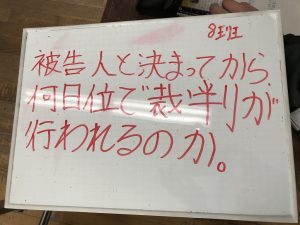 8班
被告人と決まってから、
何日位で裁判が
行われるのか。